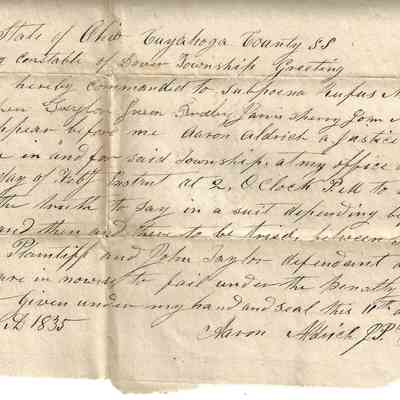 State of Ohio Cuyahoga County SS
Constable of Dover Township Greeting
hereby commanded to Subpoena Rufus
James Sherry John
ppear before me Aaron Aldrich a Justice
in and for said Township, at my office
day of Instant at 2, OClock P.M to
the truth to say in a suit depending
and then and there to be tried, between
Plantiff and John Taylor defendent
are in nowise to fail under the Penalty
Given under my hand and seal this 11th
AD 1835 Aaron Aldrich J.P.